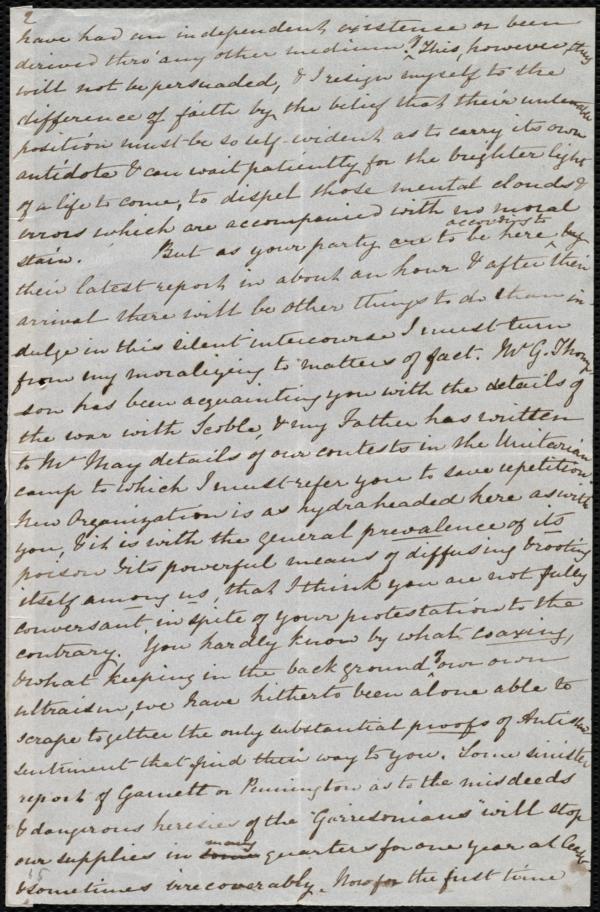 2
have had an independent existence or been
derived thro' any other medium? This, however, they
will not be persuaded, & I resign myself to the
difference of faith by the belief that their untenable
position must be so self-evident as to carry its own
antidote & can wait patiently for the brighter light
of a life to come, to dispel those mental clouds &
errors which are accompanied with no moral
stain. But as your party are to be here by
according to
their latest report in about an hour & after their
arrival there will be other things to do than in-
dulge in this silent intercourse I must turn
from my moralizing to matters of fact. Mr G. Thomp-
son has been acquainting you with the details of
the war with Scoble, & my Father has written
to Mr May details of our contests in the Unitarian
camp to which I must refer you to save repetition.
New Organization is as hydraheaded here as with
you, & it is with the general prevalence of its
poison & its powerful means of diffusing & rooting
itself among us, that I think you are not fully
conversant in spite of your protestation to the
contrary. You hardly know by what coaxing,
& what keeping in the background of our own
ultraism, we have hitherto been alone able to
scrape together the only substantial proofs of Antislav
sentiment that find their way to you. Some sinister
report of Garnett or Pennington as to the misdeeds
& dangerous heresies of the "Garrisonians" will stop
our supplies in some many quarters for one year at least
& sometimes irrecoverably. Now for the first time
15